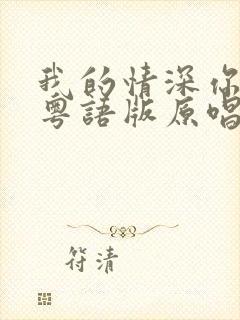 我的情深你
粤語版原唱
符清